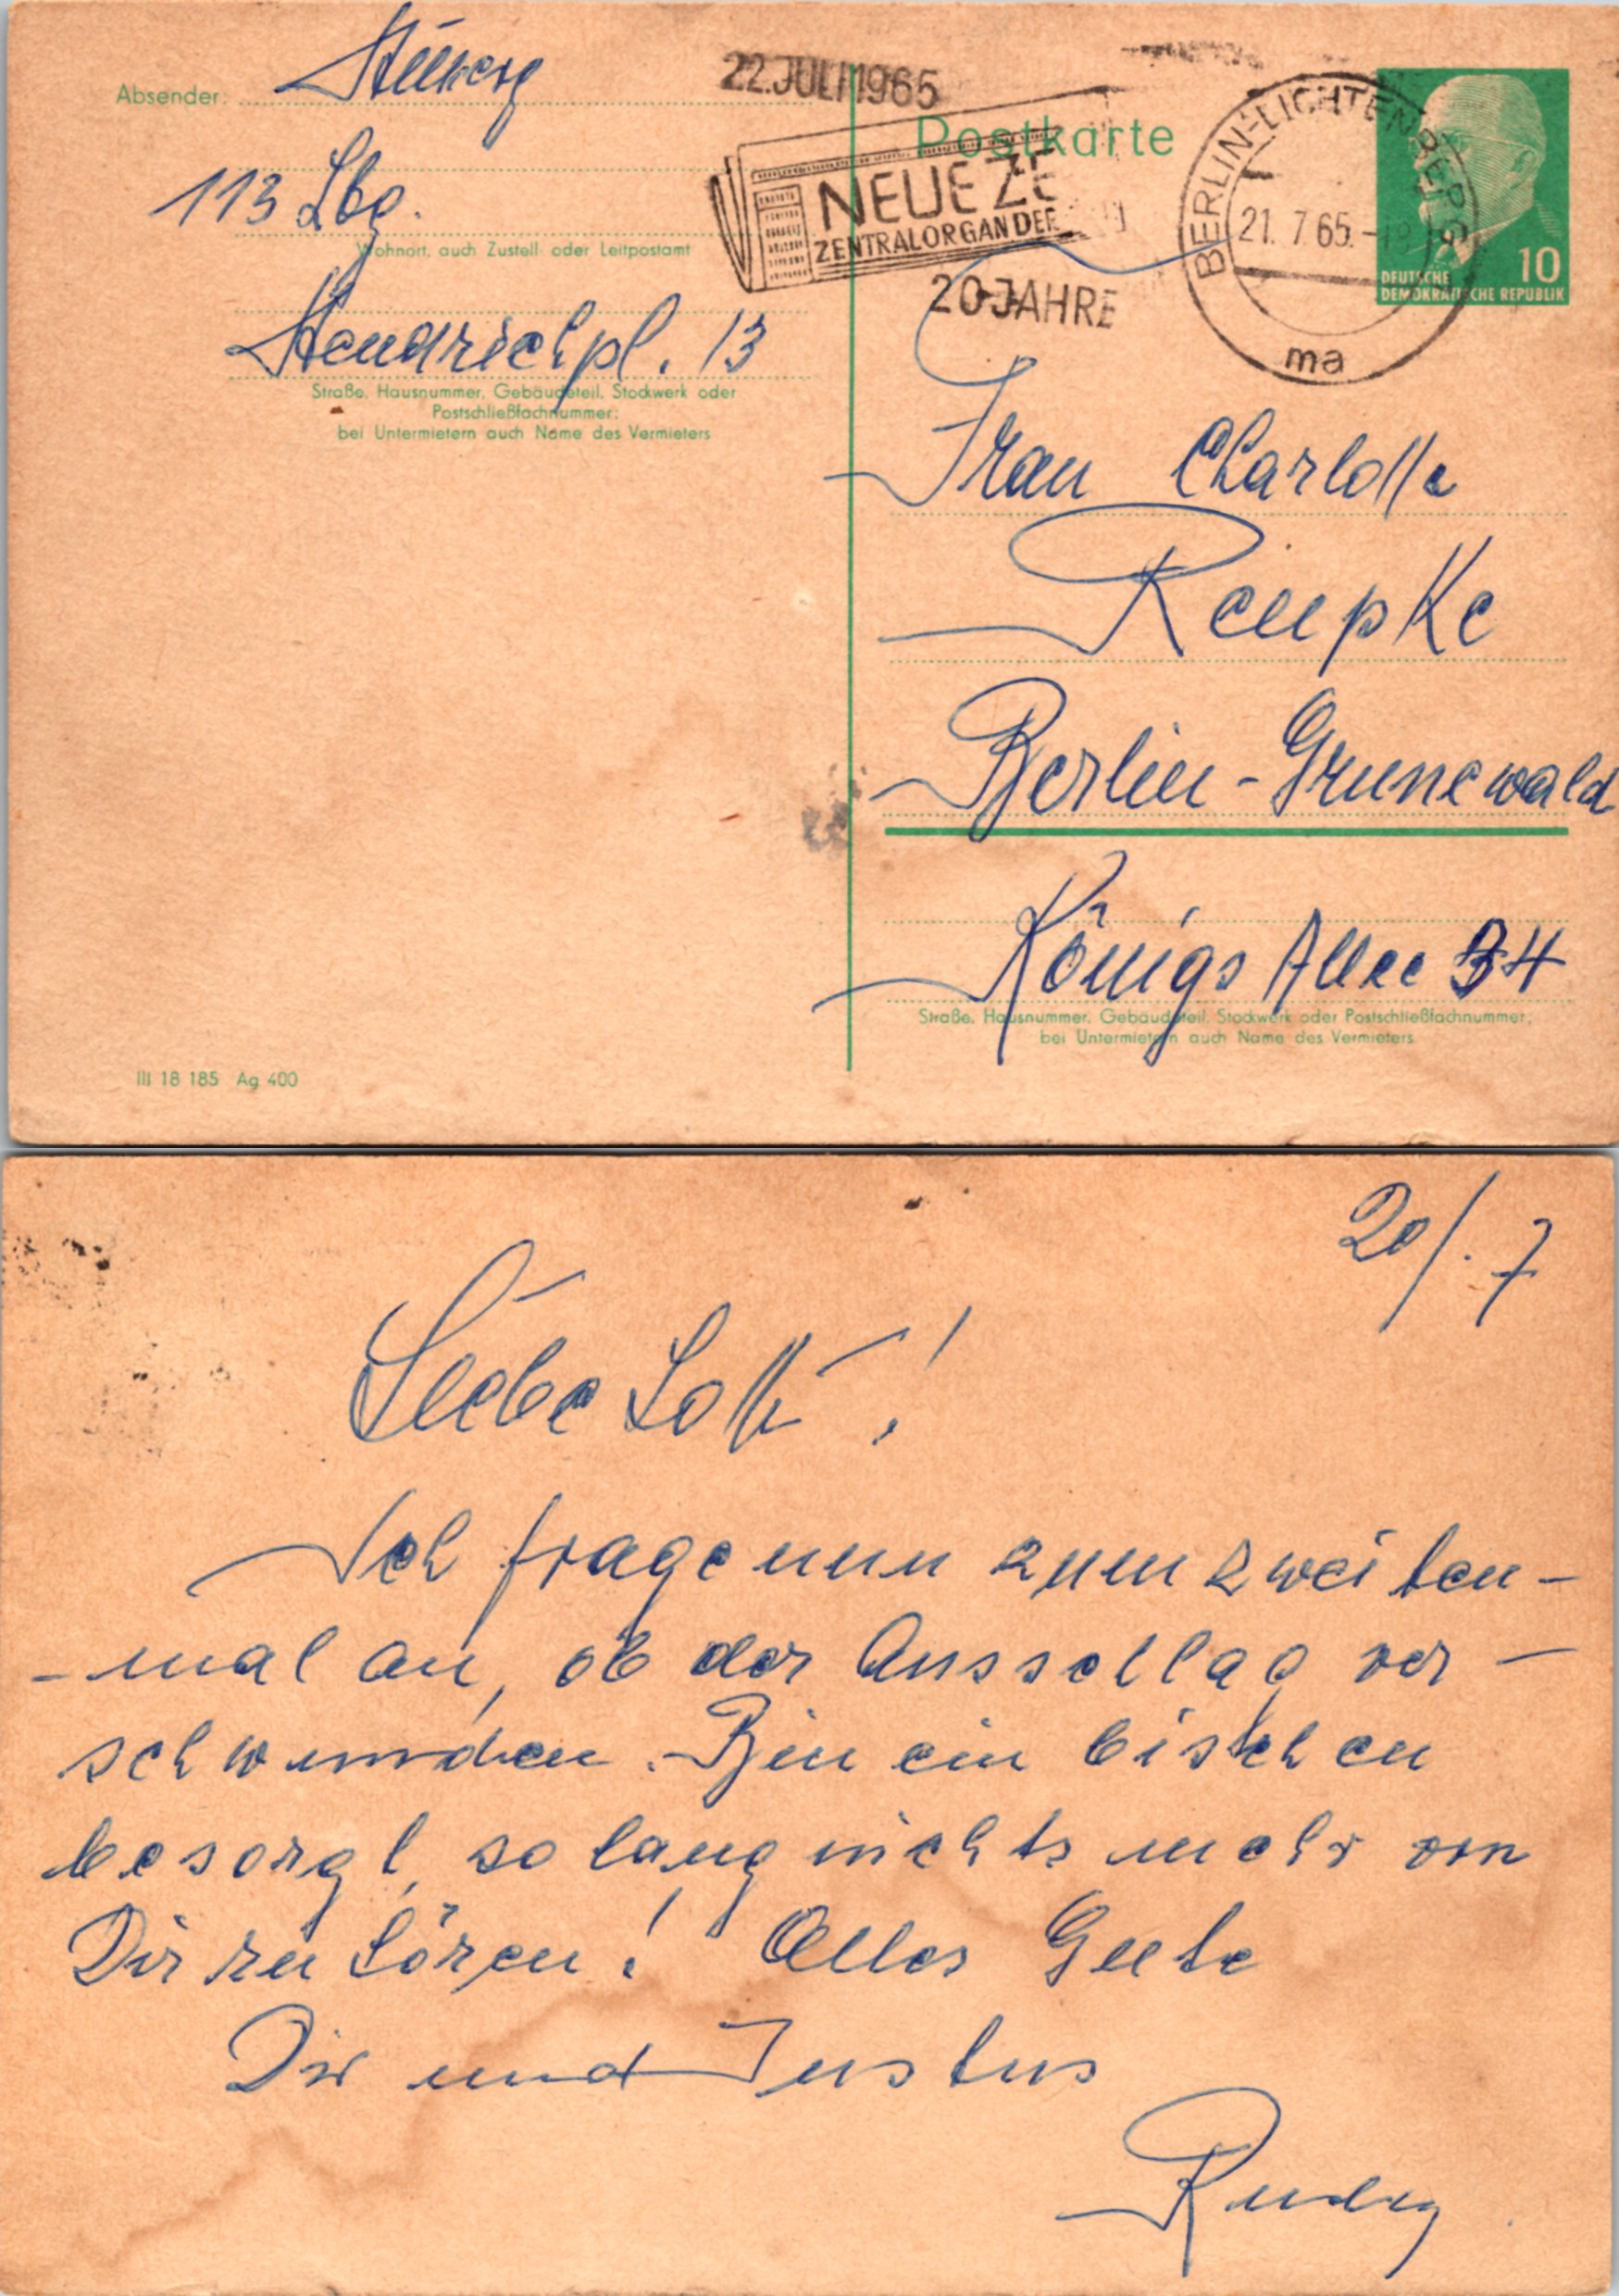 Absender:
113 Lbg.
Wohnort, auch Zustell- oder Leitpostamt
Hendrichpl. 13
Straße, Hausnummer, Gebäudeteil, Stockwerk oder
Postschließfachnummer;
bei Untermietern auch Name des Vermieters
22. JULI 1965
NEUE ZE
ZENTRALORGAN DER
20 JAHRE
Postkarte
BERLIN-LICHTENBERG
21. 7. 65.
ma
10
DEUTSCHE
DEMOKRATISCHE REPUBLIK
Frau Charlotte
Rempke
Berlin-Grunewald
Königs Allee 34
Straße, Hausnummer, Gebäudeteil, Stockwerk oder Postschließfachnummer;
bei Untermietern auch Name des Vermieters
III 18 185 Ag 400
20/. 7
Liebe Lotte!
Ich frage nun zum zweiten-
-mal an, ob der Ausschlag ver-
schwunden. Bin ein bischen
besorgt, so lang nichts mehr von
Dir zu hören! Alles Gute
Dir und Justus
Rudy